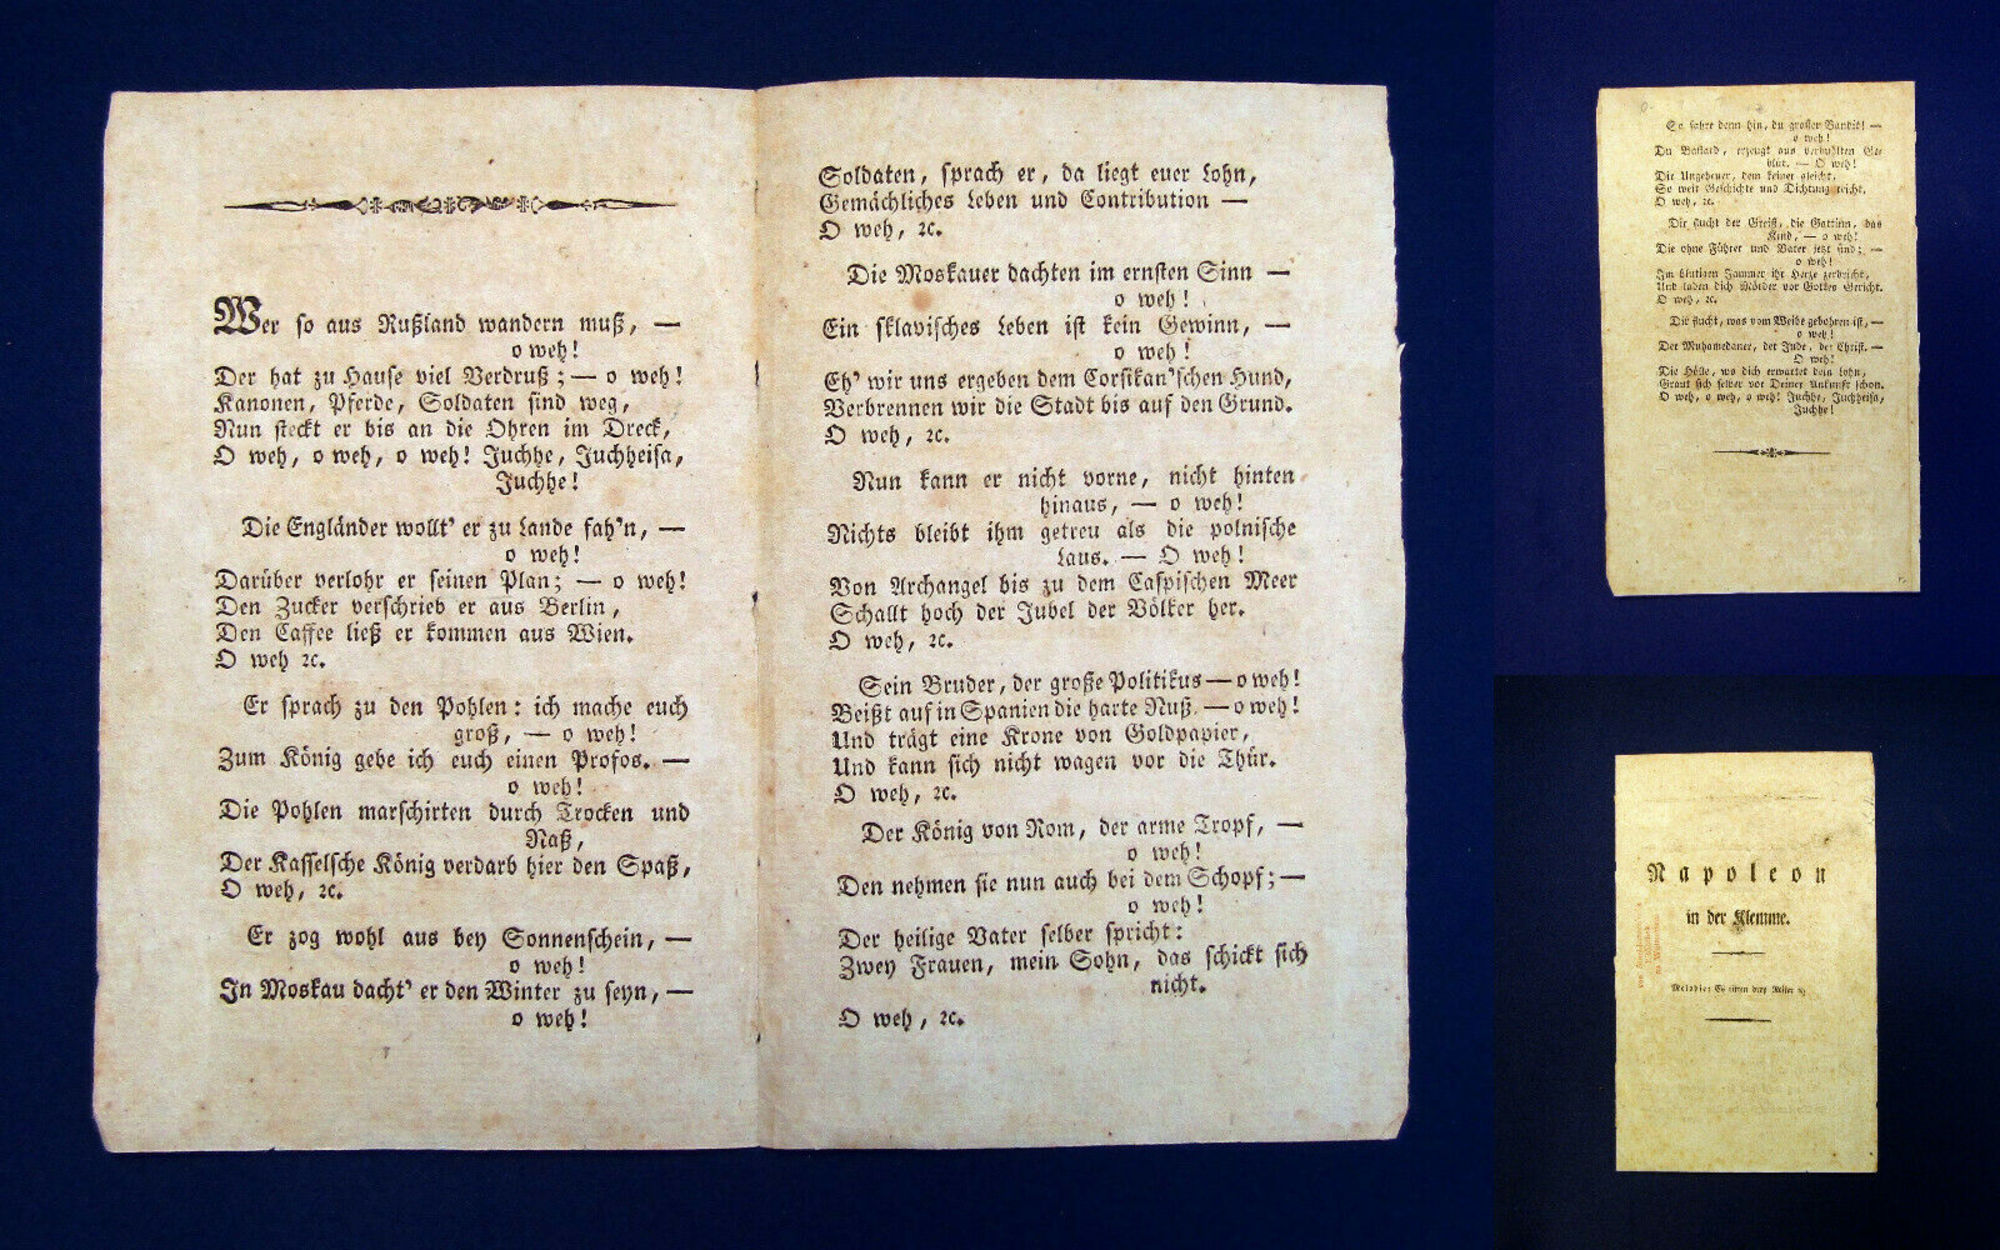 Wer so aus Rußland wandern muß, —
o weh!
Der hat zu Hause viel Verdruß; — o weh!
Kanonen, Pferde, Soldaten sind weg,
Nun steckt er bis an die Ohren im Dreck,
O weh, o weh, o weh! Juchhe, Juchheisa,
Juchhe!
Die Engländer wollt' er zu Lande fah'n, —
o weh!
Darüber verlohr er seinen Plan; — o weh!
Den Zucker verschrieb er aus Berlin,
Den Caffee ließ er kommen aus Wien.
O weh ꝛc.
Er sprach zu den Pohlen: ich mache euch
groß, — o weh!
Zum König gebe ich euch einen Profos. —
o weh!
Die Pohlen marschirten durch Trocken und
Naß,
Der Kasselsche König verdarb hier den Spaß,
O weh, ꝛc.
Er zog wohl aus bey Sonnenschein, —
o weh!
In Moskau dacht' er den Winter zu seyn, —
o weh!
Soldaten, sprach er, da liegt euer Lohn,
Gemächliches Leben und Contribution —
O weh, ꝛc.
Die Moskauer dachten im ernsten Sinn —
o weh!
Ein sklavisches Leben ist kein Gewinn, —
o weh!
Eh' wir uns ergeben dem Corsikan'schen Hund,
Verbrennen wir die Stadt bis auf den Grund.
O weh, ꝛc.
Nun kann er nicht vorne, nicht hinten
hinaus, — o weh!
Nichts bleibt ihm getreu als die polnische
Laus. — O weh!
Von Archangel bis zu dem Caspischen Meer
Schallt hoch der Jubel der Völker her.
O weh, ꝛc.
Sein Bruder, der große Politikus — o weh!
Beißt auf in Spanien die harte Nuß. — o weh!
Und trägt eine Krone von Goldpapier,
Und kann sich nicht wagen vor die Thür.
O weh, ꝛc.
Der König von Rom, der arme Tropf, —
o weh!
Den nehmen sie nun auch bei dem Schopf; —
o weh!
Der heilige Vater selber spricht:
Zwey Frauen, mein Sohn, das schickt sich
nicht.
O weh, ꝛc.
So fahre denn hin, du großer Bandit! —
o weh!
Du Bastard, erzeugt aus verbuhlten Ge-
blüt. — O weh!
Die Ungeheuer, dem keiner gleicht,
So weit Geschichte und Dichtung reicht.
O weh, ꝛc.
Dir flucht der Greiß, die Gattinn, das
Kind, — o weh!
Die ohne Führer und Vater jetzt sind; —
o weh!
Im blutigen Jammer ihr Herze zerbricht,
Und laden dich Mörder vor Gottes Gericht.
O weh, ꝛc.
Dir flucht, was vom Weibe gebohren ist, —
o weh!
Der Muhamedaner, der Jude, der Christ. —
O weh!
Die Hölle, wo dich erwartet dein Lohn,
Graut sich selber vor Deiner Ankunft schon.
O weh, o weh, o weh! Juchhe, Juchheisa,
Juchhe!
Napoleon
in der Klemme.
Melodie: Es ritten drey Reiter ꝛc.